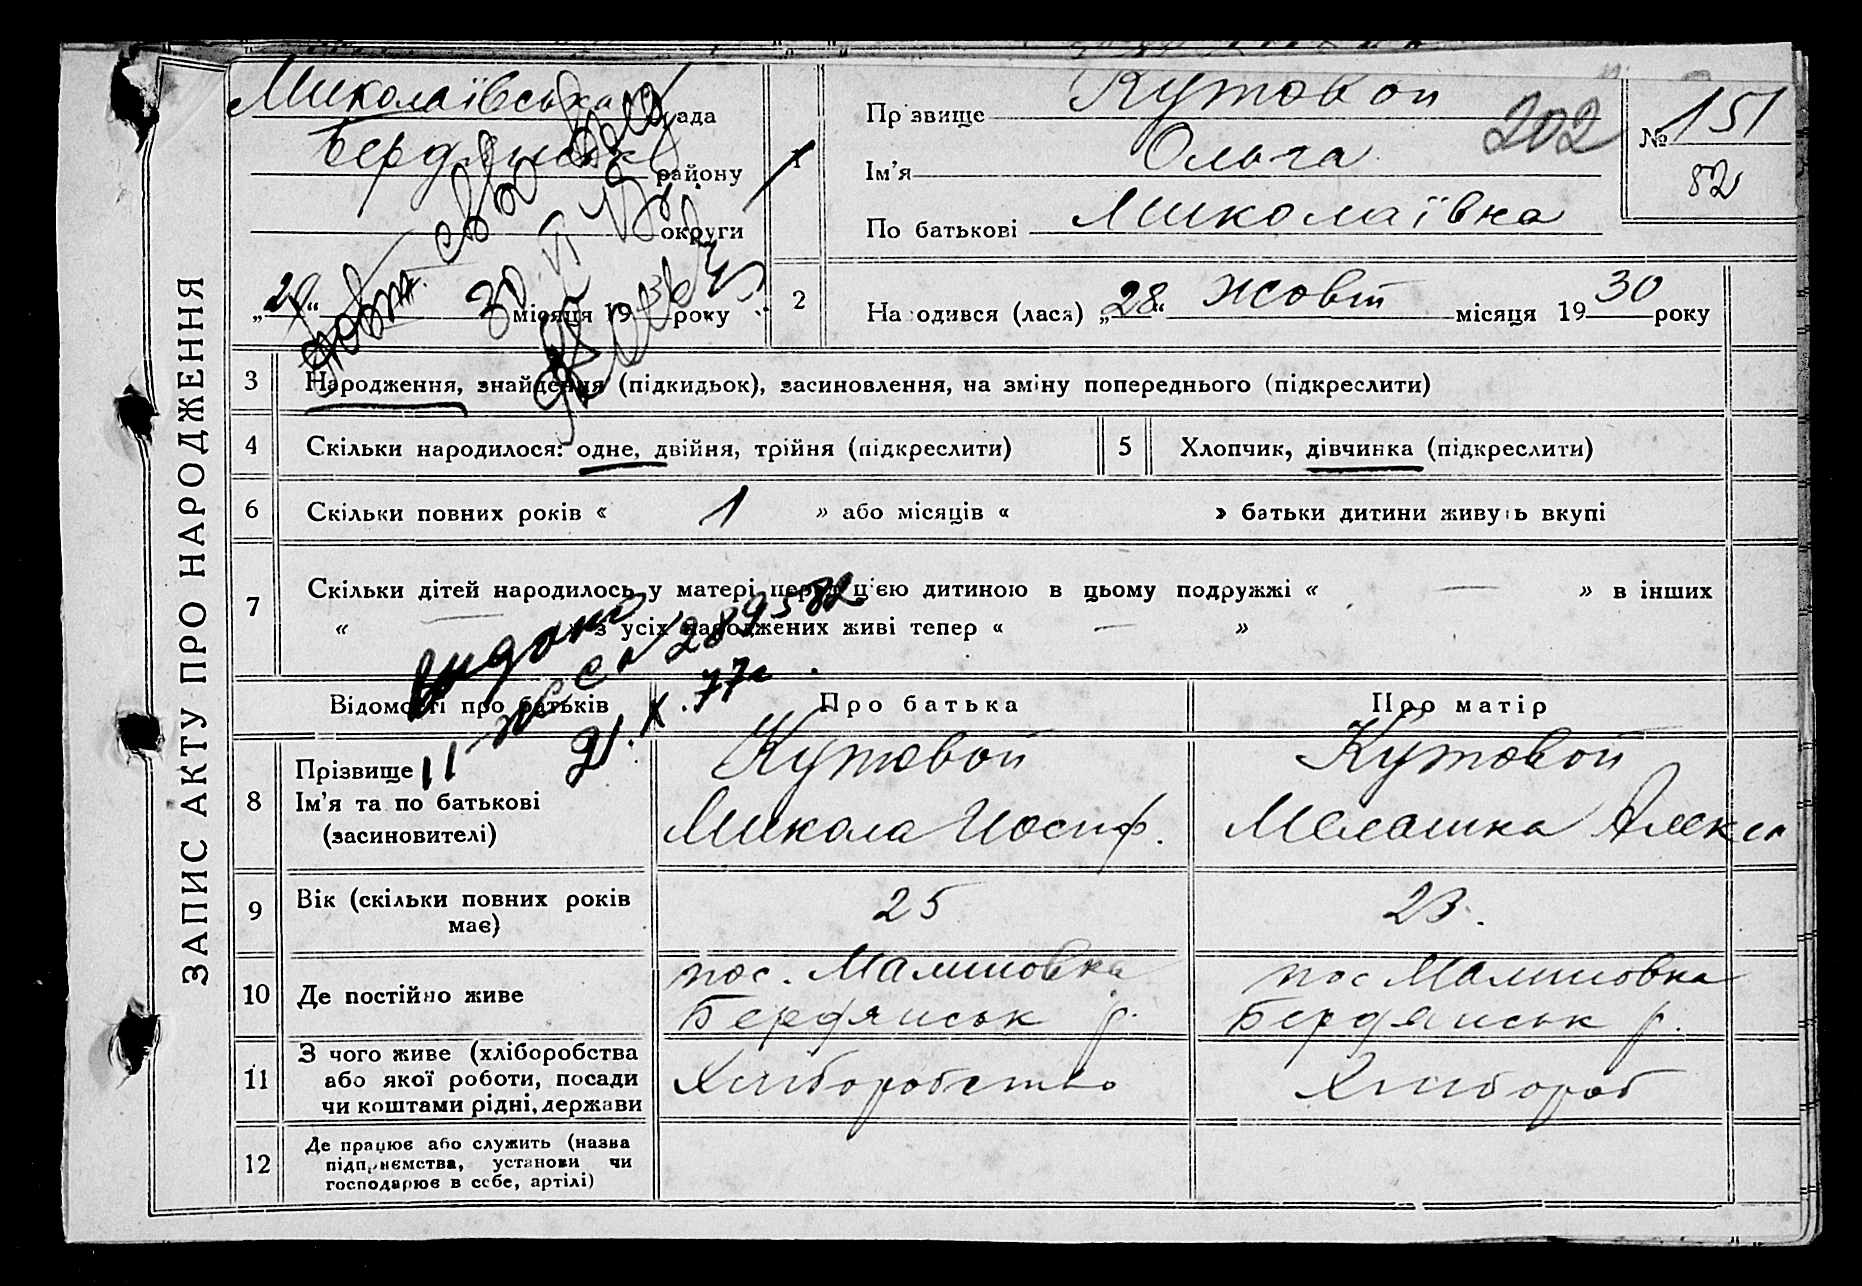 ЗАПИС АКТУ ПРО НАРОДЖЕННЯ
Миколаївська рада
Бердянськ району
округи
„29“ жовт. місяця 1930 року
1
Прізвище Кутовой
Ім'я Ольга
По батькові Миколаївна
202
№ 151
82
2 Народився (лася) „28“ жовт місяця 1930 року
3 Народження, знайдення (підкидьок), засиновлення, на зміну попереднього (підкреслити)
4 Скільки народилося: одне, двійня, трійня (підкреслити) 5 Хлопчик, дівчинка (підкреслити)
6 Скільки повних років « 1 » або місяців « » батьки дитини живуть вкупі
7 Скільки дітей народилось у матері перед цією дитиною в цьому подружжі « — » в інших
« — » з усіх народжених живі тепер « — »
видано
II-ЖС № 289582
21.X.77г.
Відомості про батьків Про батька Про матір
8 Прізвище Кутовой Кутовой
Ім'я та по батькові Микола Иосиф. Мелашка Алекса
(засиновителі)
9 Вік (скільки повних років має) 25 23.
10 Де постійно живе пос. Малиновка пос Малиновка
Бердянськ р. Бердянськ р.
11 З чого живе (хліборобства
або якої роботи, посади Хлиборобство Хлибороб
чи коштами рідні, держави
12 Де працює або служить (назва
підприємства, установи чи
господарює в себе, артілі)